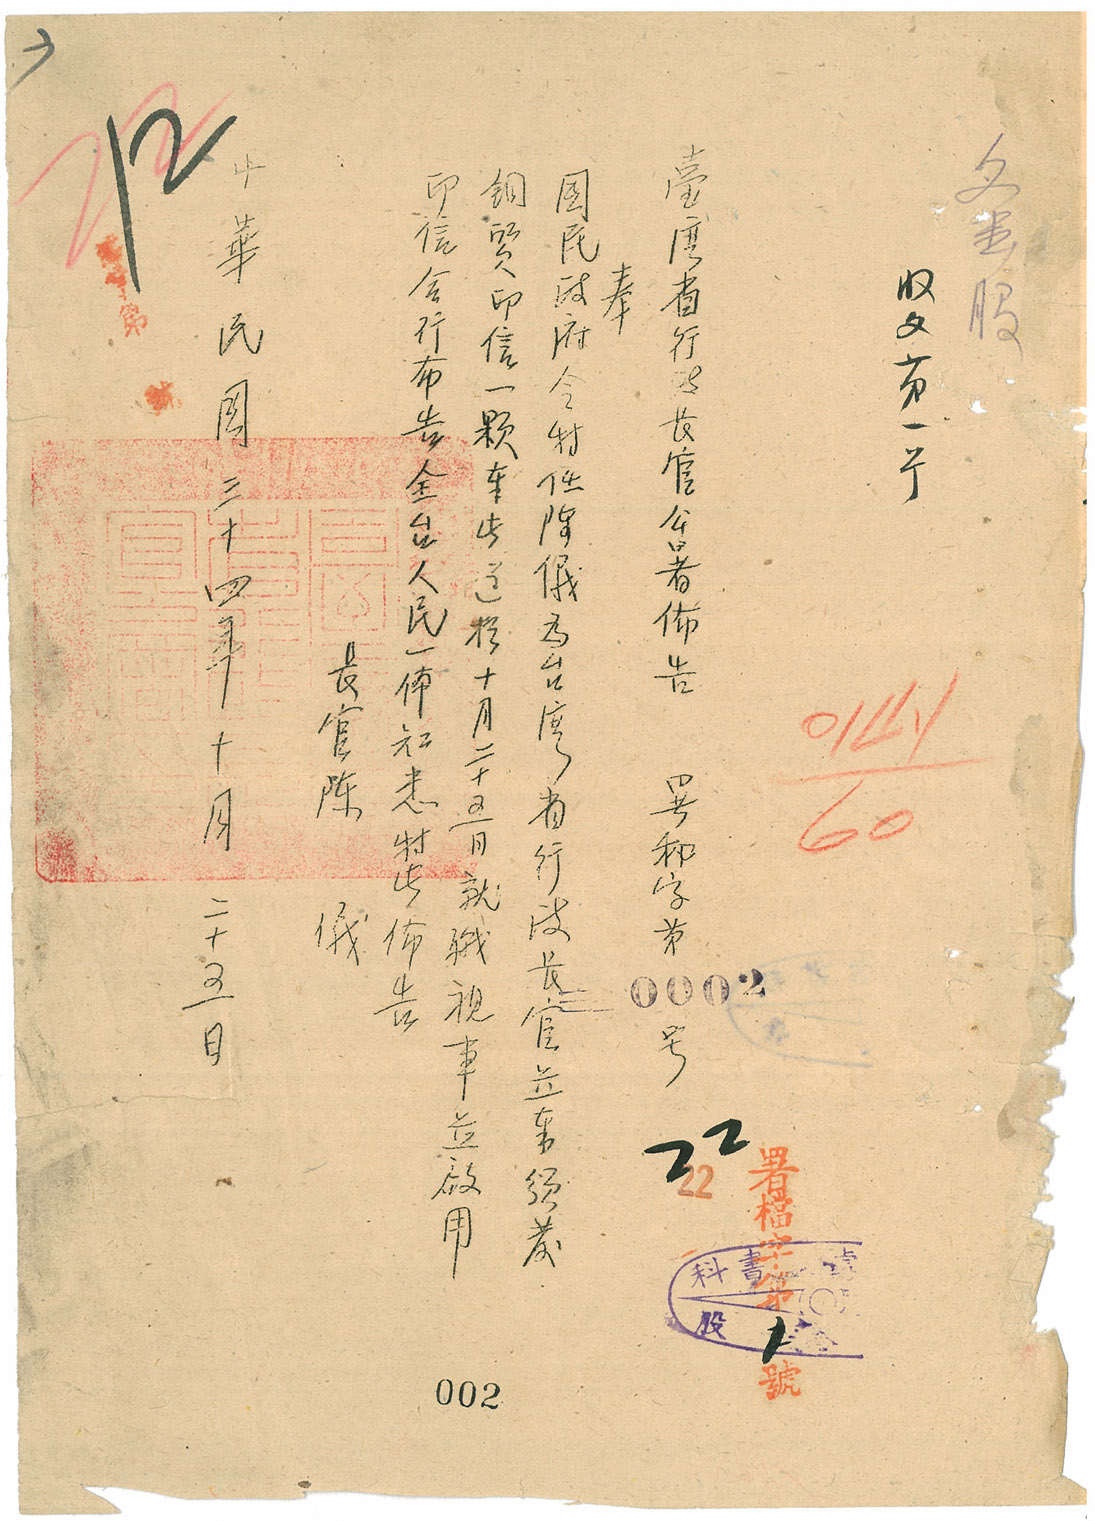 文書股
收文第一号
臺灣省行政長官公署佈告　署秘字第0002号
奉
国民政府令特任陳儀為台灣省行政長官並奉頒發
銅質印信一顆奉此遵於十月二十五日就職視事並啟用
印信合行布告全台人民一体知悉特此佈告
長官陳　儀
中華民国三十四年十月二十五日
22
22
署檔字第1號
科 書
股
60
12
第
號
002